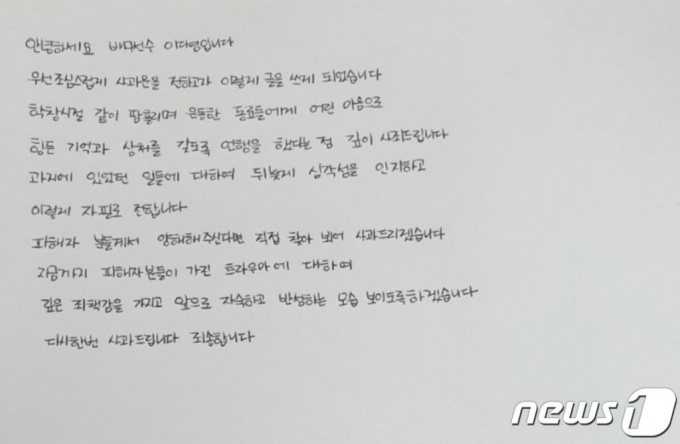 안녕하세요 배구선수 이다영입니다
우선 조심스럽게 사과문을 전하고자 이렇게 글을 쓰게 되었습니다
학창시절 같이 땀흘리며 운동한 동료들에게 어린 마음으로
힘든 기억과 상처를 갖도록 언행을 했다는 점 깊이 사죄드립니다
과거에 있었던 일들에 대하여 뒤늦게 심각성을 인지하고
이렇게 자필로 전합니다
피해자 분들께서 양해해주신다면 직접 찾아 뵈어 사과드리겠습니다
지금까지 피해자분들이 가진 트라우마에 대하여
깊은 죄책감을 가지고 앞으로 자숙하고 반성하는 모습 보이도록하겠습니다
다시한번 사과드립니다 죄송합니다
news1